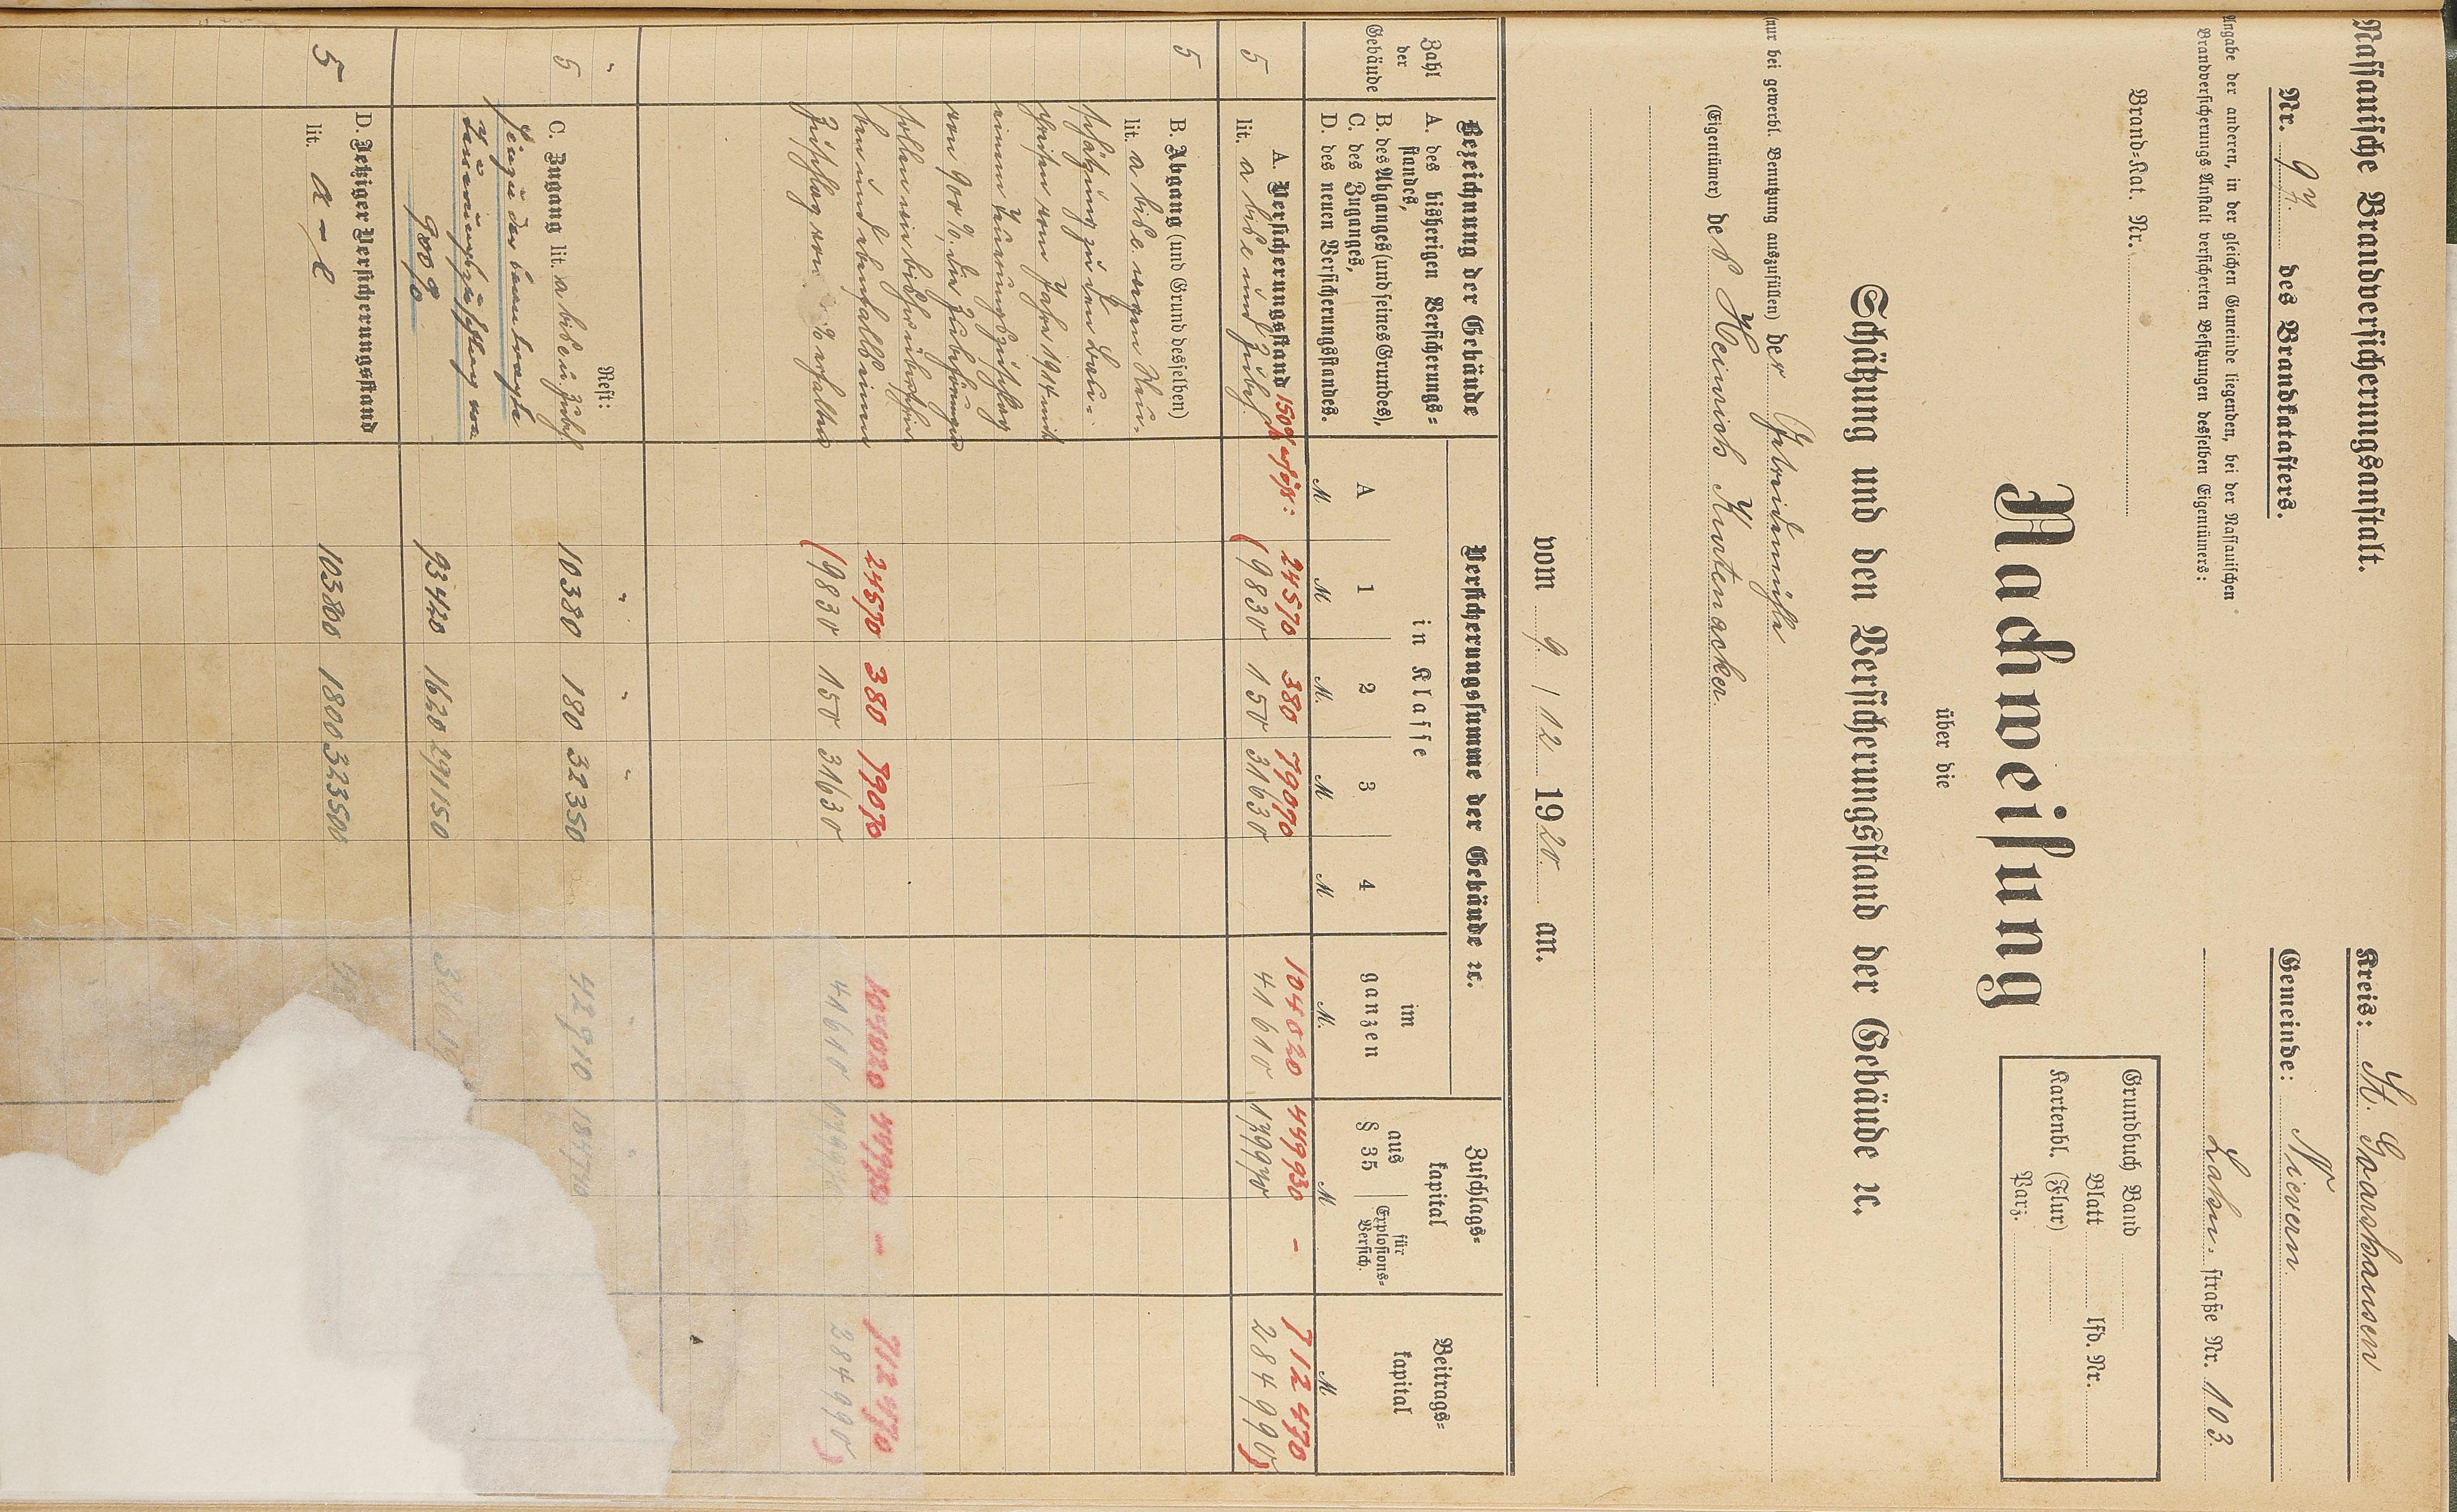 Nassauische Brandversicherungsanstalt.
Nr. 97. des Brandkatasters.
Angabe der anderen, in der gleichen Gemeinde liegenden, bei der Nassauischen
Brandversicherungs-Anstalt versicherten Besitzungen desselben Eigentümers:
Brand-Kat. Nr.
Kreis: St. Goarshausen
Gemeinde: Nievern
Lahn-straße Nr. 103.
Grundbuch Band
Blatt lfd. Nr.
Kartenbl. (Flur)
Parz.
Nachweisung
über die
Schätzung und den Versicherungsstand der Gebäude ꝛc.
(nur bei gewerbl. Benutzung auszufüllen) der Getreidemühle
(Eigentümer) des Heinrich Kurtenacker
vom 9/12 1920 an.
Zahl
der
Gebäude
Bezeichnung der Gebäude
A. des bisherigen Versicherungs-
standes,
B. des Abganges (und seines Grundes),
C. des Zuganges,
D. des neuen Versicherungsstandes.
Versicherungssumme der Gebäude ꝛc.
in Klasse
A 1 2 3 4
im
ganzen
Zuschlags-
kapital
aus
§ 35
für
Explosions-
Versich.
Beitrags-
kapital
M. M. M. M. M. M. M. M.
A. Versicherungsstand 150% erhöht: 24570 380 79070 104020 449930 - 712470
5 lit. a bis e und Zubeh. (9830 150 31630 41610 179970 284990)
B. Abgang (und Grund desselben)
5 lit. a bis e wegen Neu-
schätzung zu den Bau-
preisen vom Jahre 1914 mit
einem Teuerungszuschlag
von 900%. Die Zubehörungen
sollen wie bisher
ben und ebenfalls einen
24570 380 79070 104020 449930 - 712470
Zuschlag von % erhalten (9830 150 31630 41610 179970 284990)
Rest:
5 C. Zugang lit. a bis e u. Zubeh. 10380 180 32350 42910
der beantragte
Teuerungszuschlag von
900% 93420 1620 291150
D. Jetziger Versicherungsstand
5 lit. a - e 103800 1800 323500